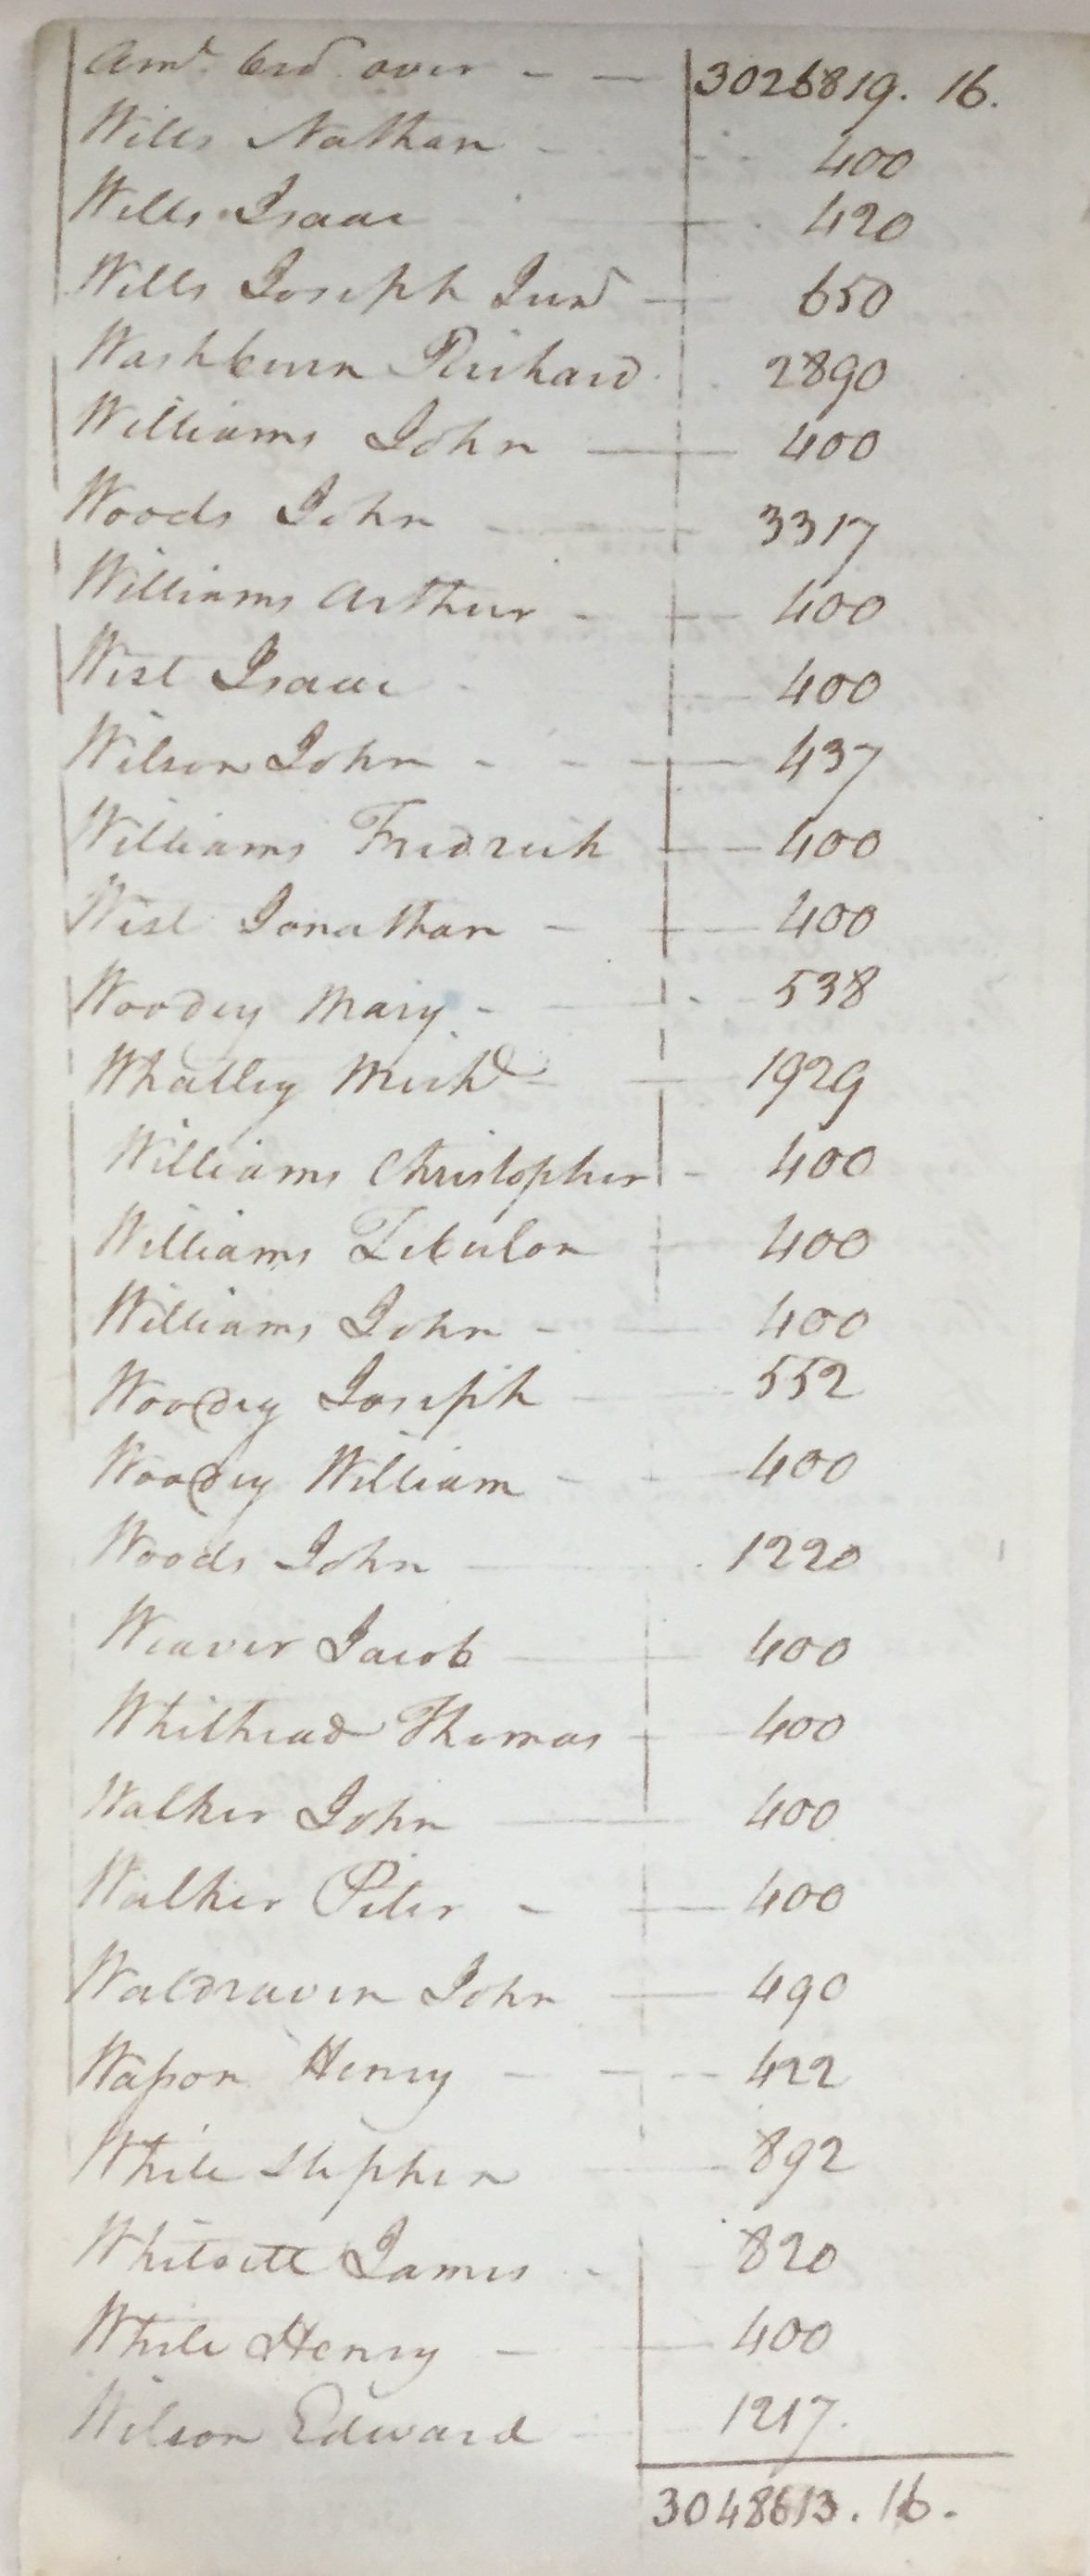 Amt. brd. over - — 3026819. 16.
Wills Nathan - 400
Wills Isaac - 420
Wills Joseph Junr — 650
Washburn Richard 2890
Williams John — 400
Woods John — 3317
Williams Arthur - — 400
West Isaac - — 400
Wilson John - - — 437
Williams Fredrick — 400
West Jonathan - — 400
Woodey Mary - — 538
Whatley Michl — 1929
Williams Christopher - 400
Williams Zebulon — 400
Williams John - — 400
Woodey Joseph — 552
Woodey William - — 400
Woods John — 1220
Weaver Jacob — 400
Whithead Thomas — 400
Walker John — 400
Walker Peter - — 400
Waldraven John — 490
Wasson Henry - — 422
White Stephen — 892
Whitsett James - 820
White Henry — 400
Wilson Edward — 1217.
3048613. 16.